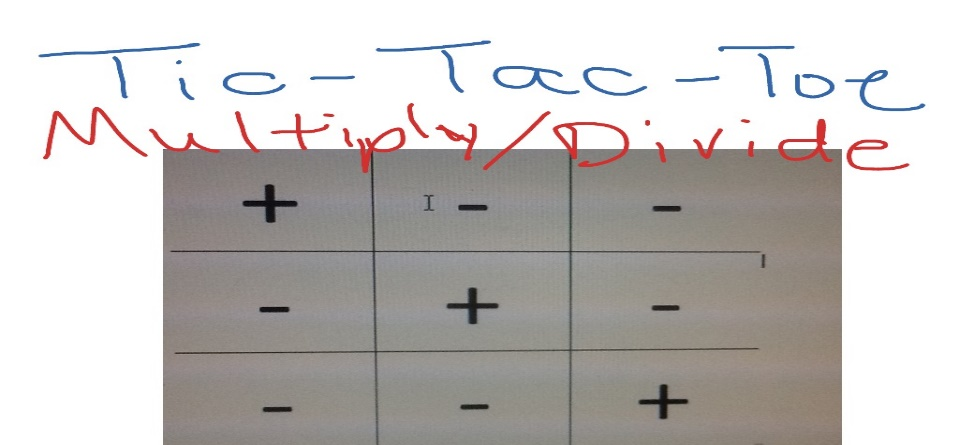 Tic-Tac-Toe
Multiply/Divide
+ - -
- + -
- - +